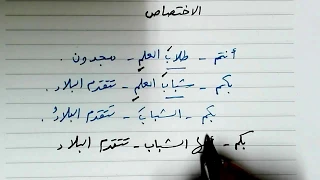 الاختصاص
أنتم - طلابَ العلمِ - مجدون .
بكم - شبابَ العلمِ - تتقدم البلاد .
بكم - الشبابَ - تتقدم البلادُ .
بكم - الشباب - تتقدم البلاد